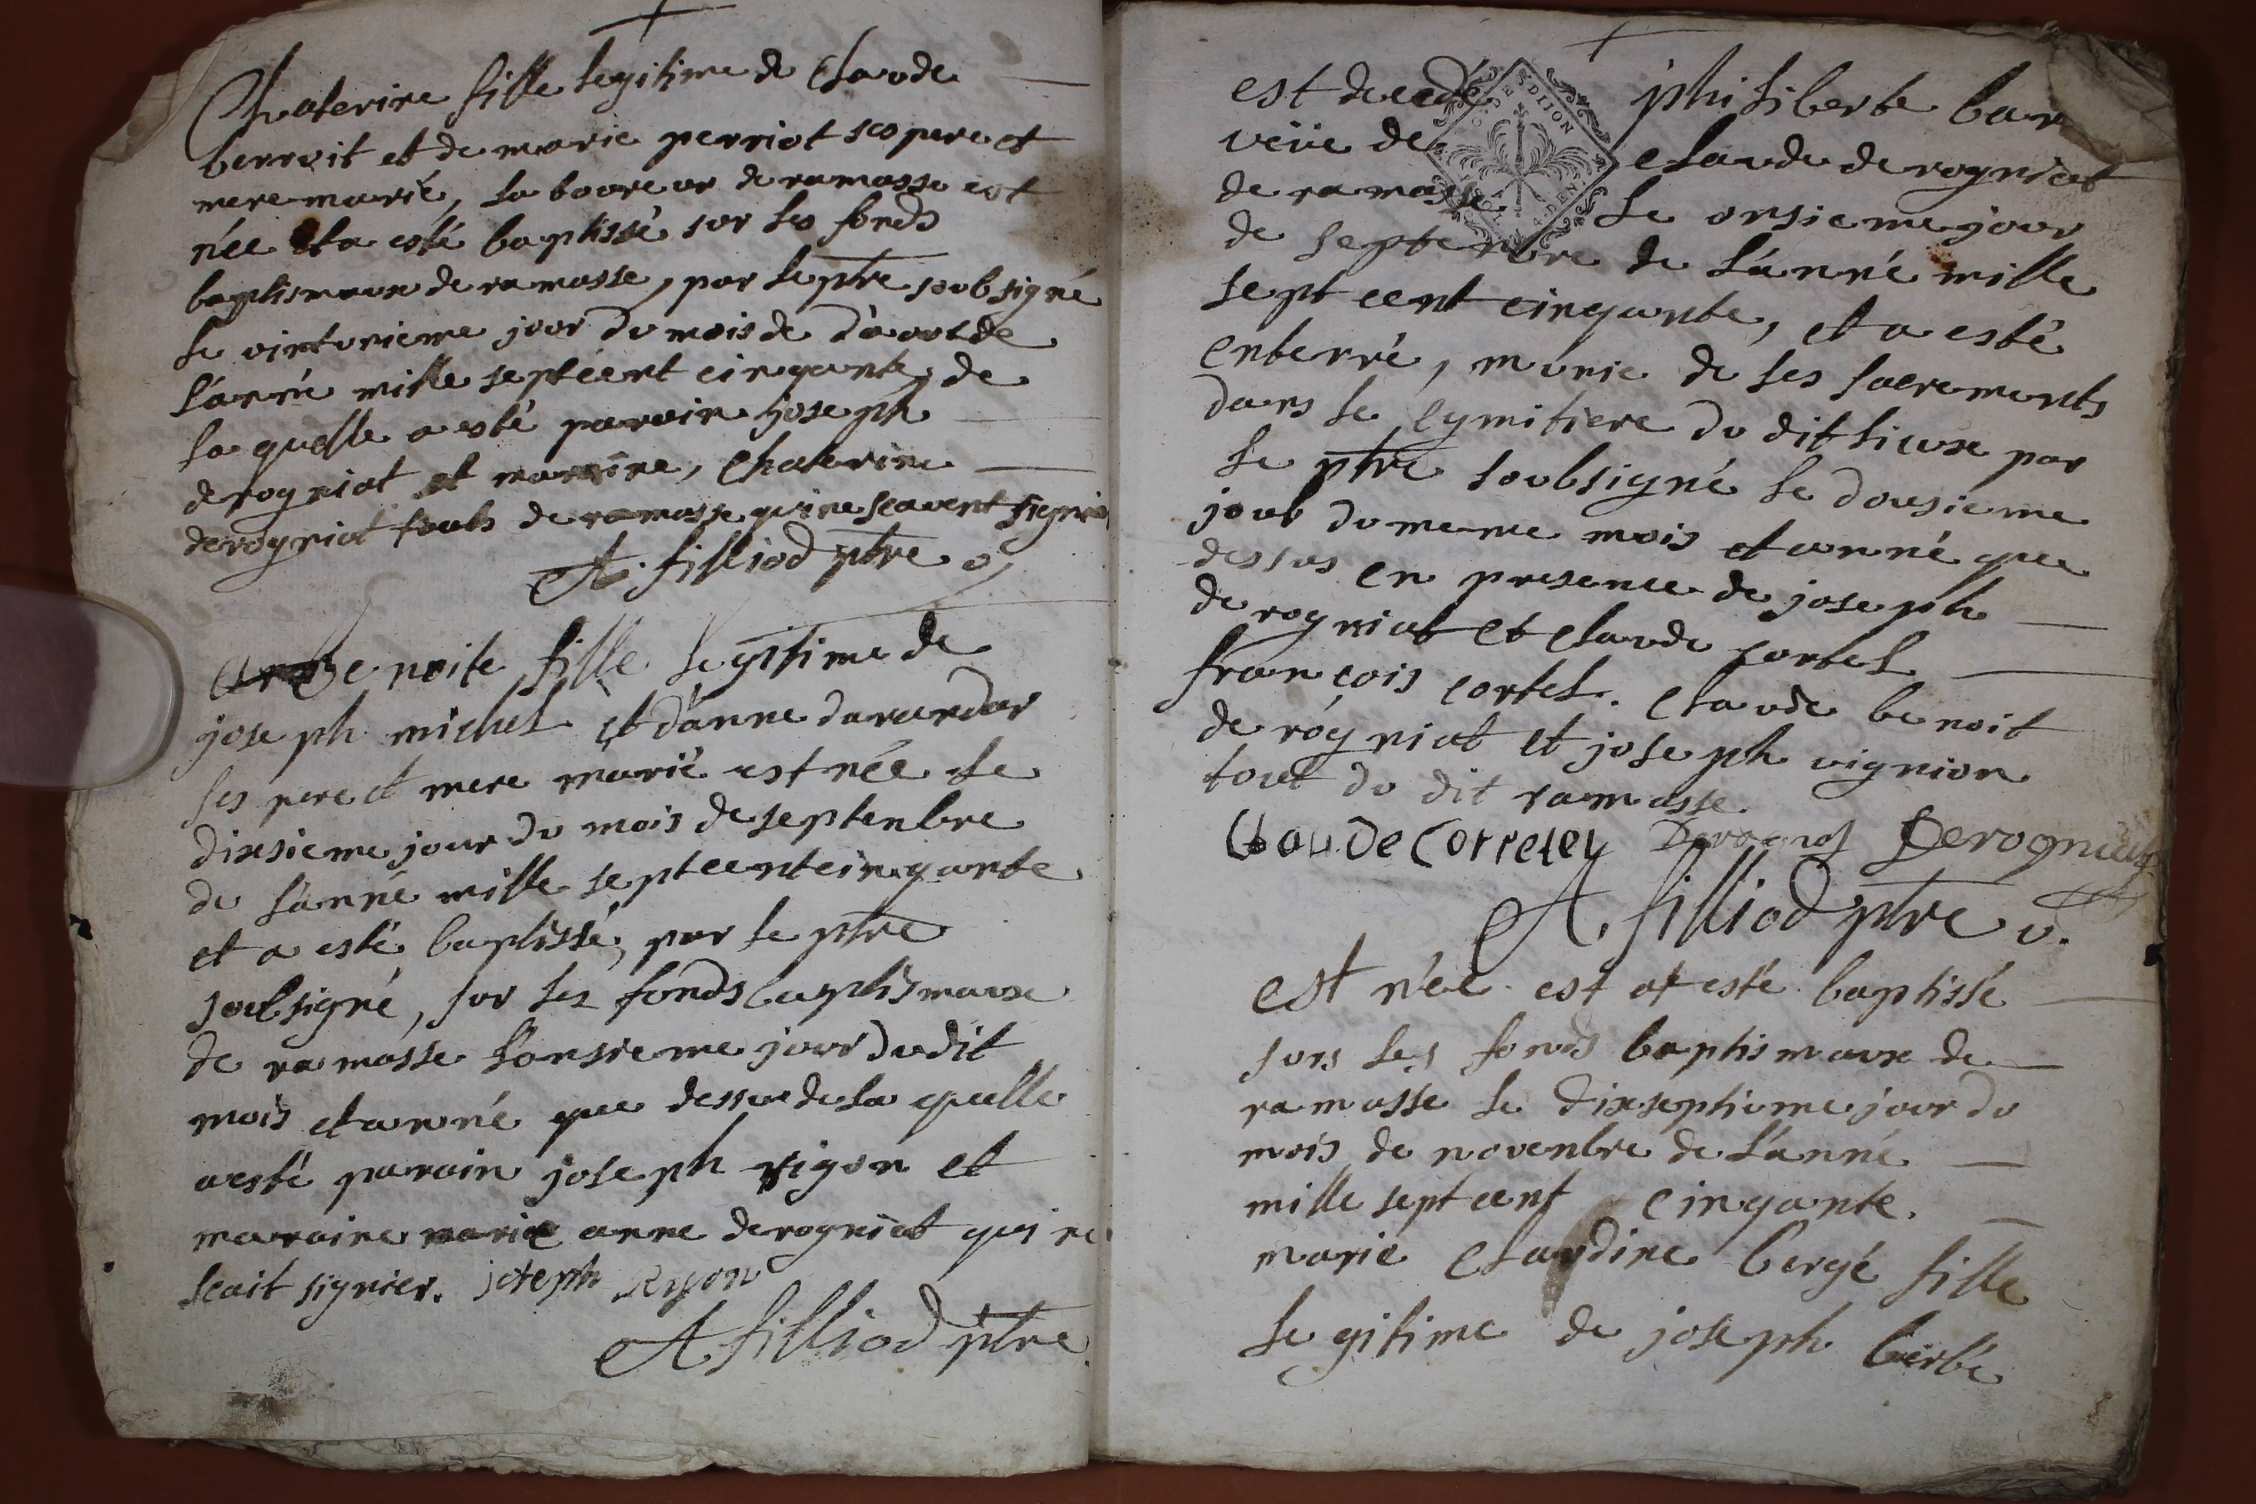 Chaterine fille legitime de Claude
benroit et de marie perriot ses pere et
mere marié, laboureur de ramasse est
née et a esté baptissé sur les fonds
baptismaux de ramasse, par le ptre soubsigné
le vintunieme jour du mois de d'aoust de
l'anné mille septcent cinqante, de
la quelle a esté parain joseph
derogniat et maraine, Chaterine
derogniat touts de ramasse qui ne scavent signié
A. filliod ptre v.
benoite fille legitime de
joseph michel et d'anne darandar
ses pere et mere marié est née le
dixsieme jour du mois de septenbre
de l'anné mille septcent cinqante
et a esté baptissé, par le ptre
soubsigné, sur les fonds baptismaux
de ramasse l'onsieme jour dudit
mois et anné que dessus de la quelle
a esté parain joseph rigon et
maraine marie anne derogniat qui ne
scait signier. joseph Rigon
A filliod ptre
est decedé philiberte bar
veüe de claude derogniat
de ramasse le onsieme jour
de septenbre de l'anné mille
sept cent cinqante, et a esté
enterré, munie de ses sacrements
dans le cymitiere du dit lieux par
le ptre soubsigné le dousieme
jour du meme mois et anné que
dessus en presence de joseph
derogniat et claude cortel
françois cortel. claude benoit
derogniat et joseph vignion
tout du dit ramasse.
Claude Corretey Derognat Derogniat
A. filliod ptre v.
est née est at esté baptissé
surs les fonds baptismaux de
ramasse le dixseptieme jour du
mois de novenbre de l'anné
mille sept cent cinqante.
marie claudine bergé fille
legitime de joseph berbé